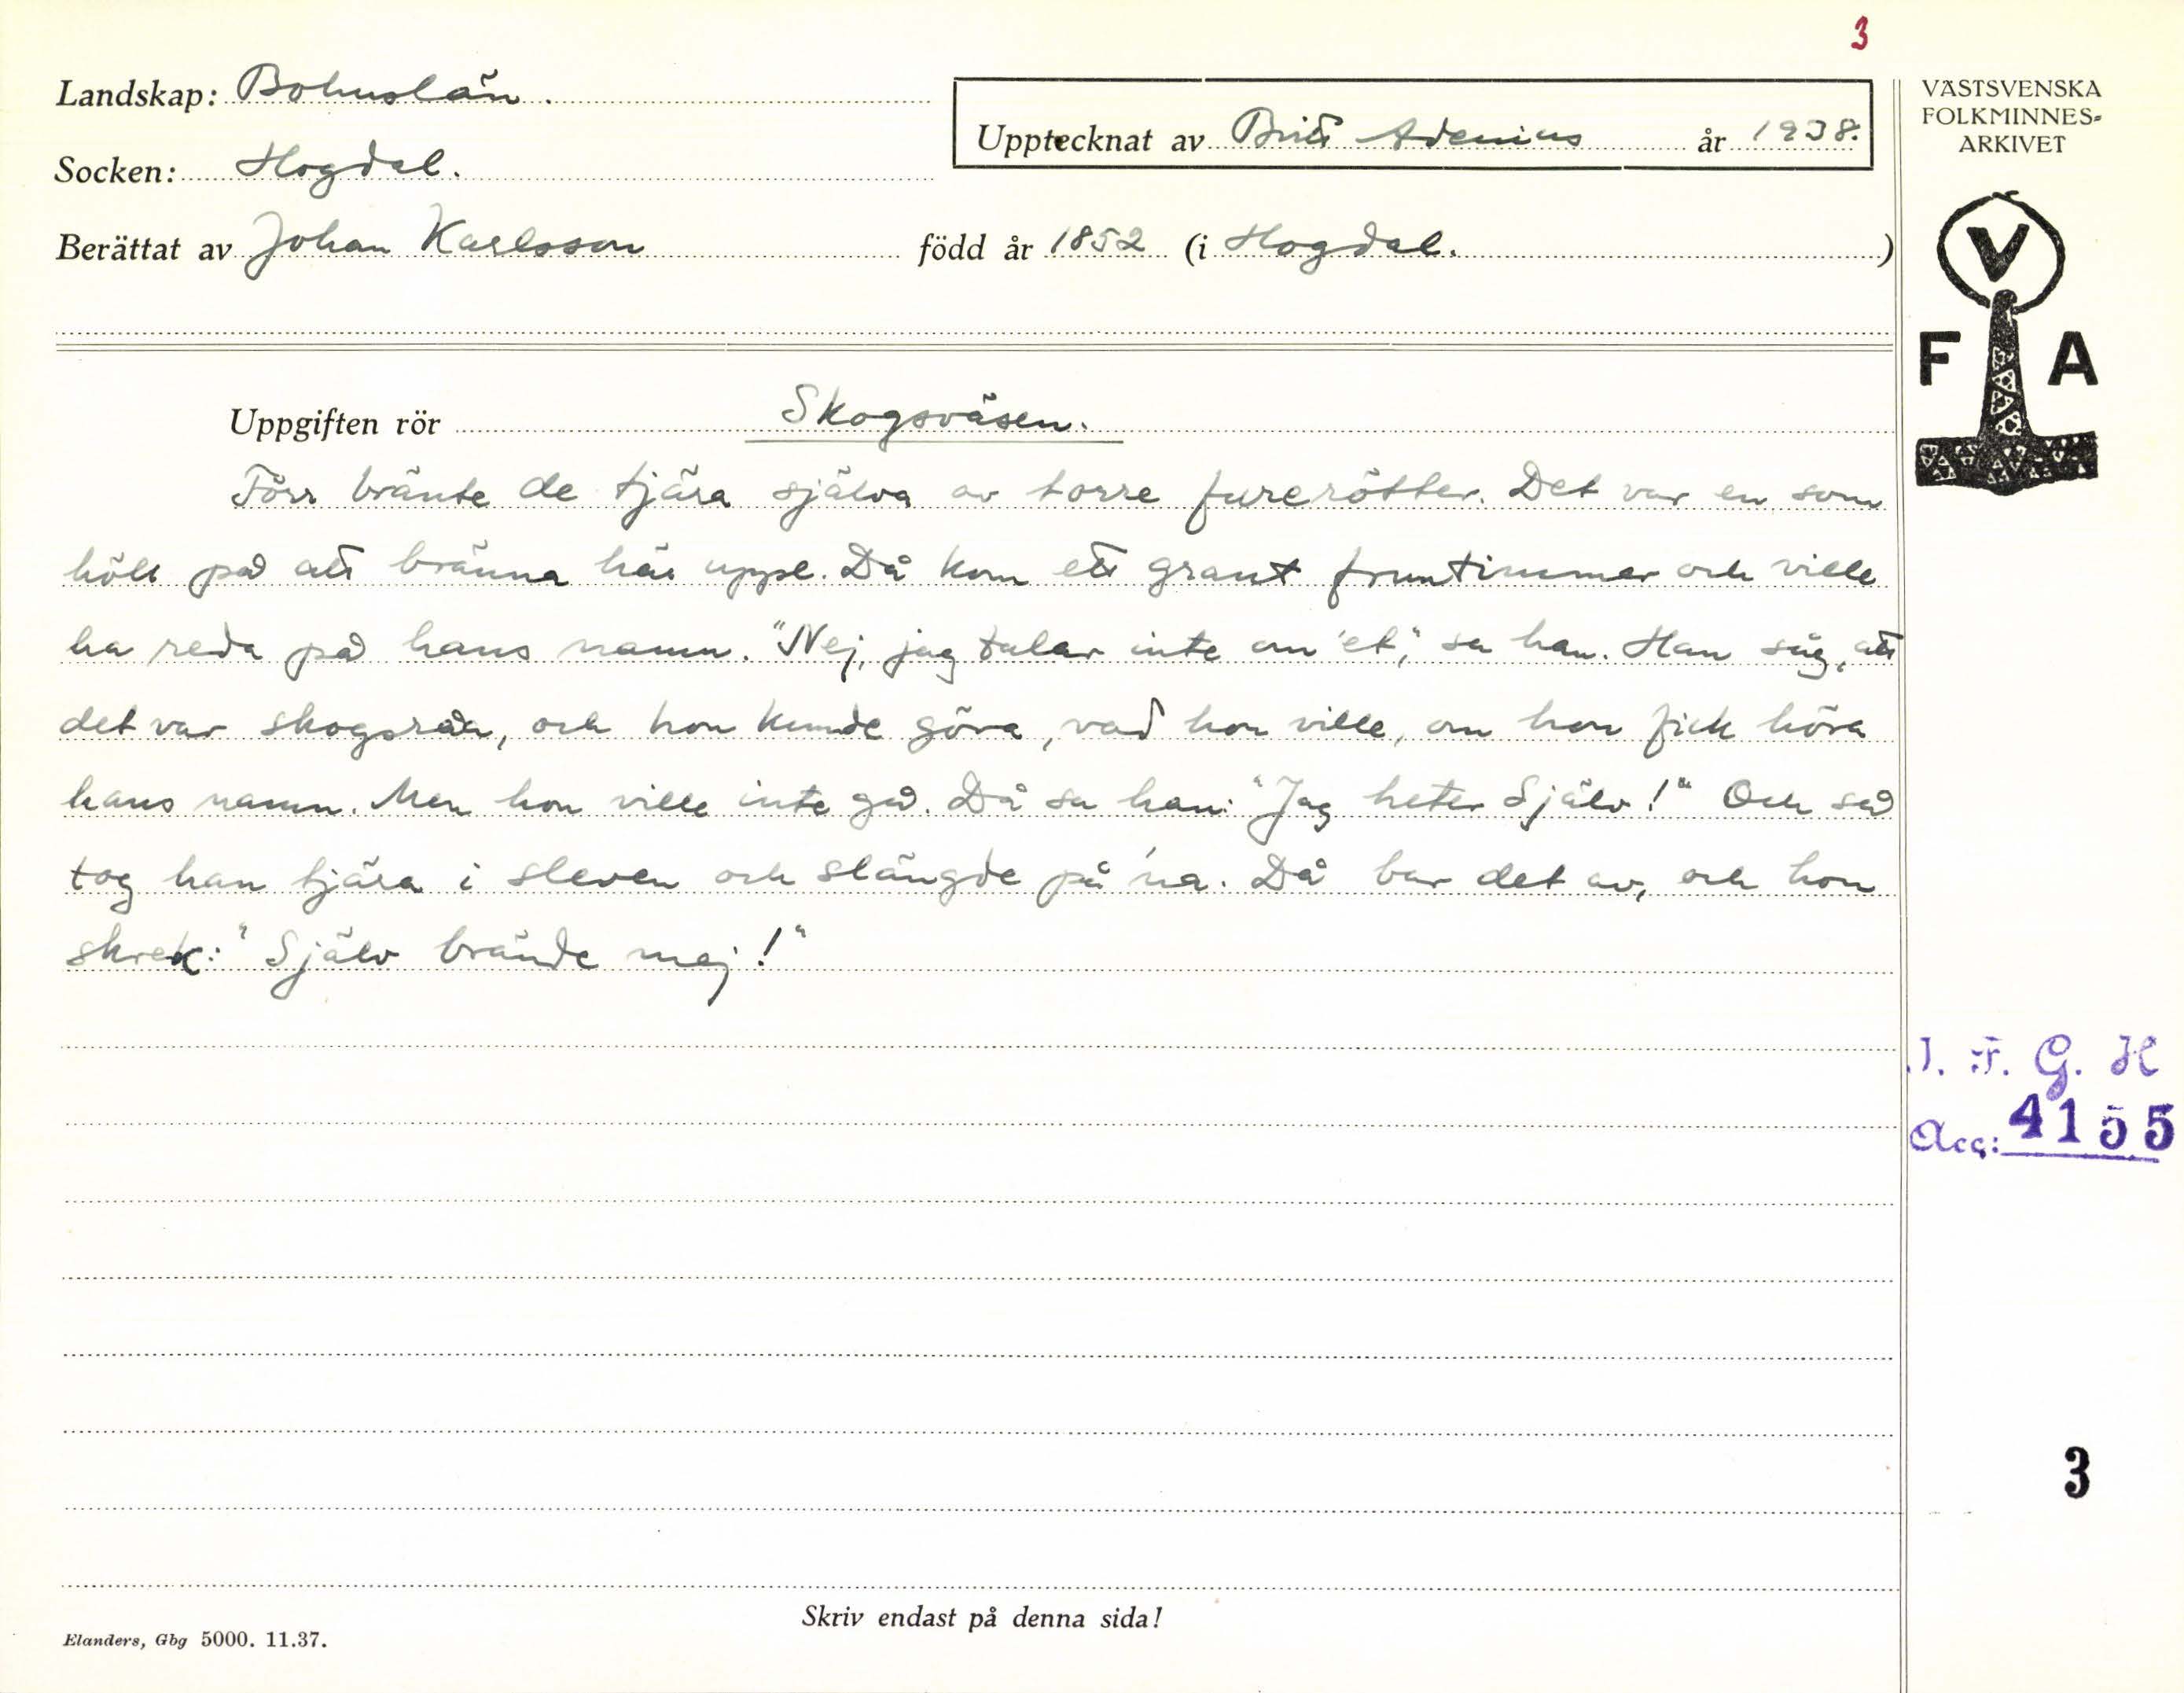 3
Landskap: Bohuslän.
Upptecknat av Britt Adenius år 1938.
Socken: Hogdal.
Berättat av Johan Karlsson född år 1852 (i Hogdal.)
VÄSTSVENSKA
FOLKMINNES-
ARKIVET
V
F A
Uppgiften rör Skogsväsen.
Förr brände de tjära själva av torre furerötter. Det var en som
höll på att bränna här uppe. Då kom ett grant fruntimmer och ville
ha reda på hans namn. "Nej, jag talar inte om 'et", sa han. Han såg, att
det var skogsråa, och hon kunde göra, vad hon ville, om hon fick höra
hans namn. Men hon ville inte gå. Då sa han: "Jag heter Själv!" Och så
tog han tjära i sleven och slängde på 'na. Då bar det av, och hon
skrek: "Själv brände mej!"
I. F. G. H
Acc: 4155
3
Skriv endast på denna sida!
Elanders, Gbg 5000. 11.37.